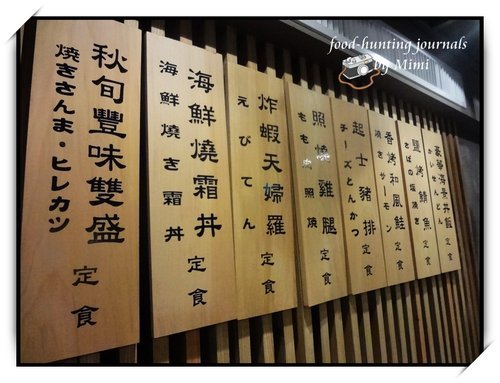 food-hunting journals
by Mimi
秋旬豐味雙盛 定食
焼きさんま・ヒレカツ
海鮮燒霜丼 定食
海鮮燒き霜丼
炸蝦天婦羅 定食
えびてん
照燒雞腿 定食
もも肉照燒
起士豬排 定食
チーズとんかつ
香烤和風鮭 定食
焼きサーモン
鹽烤鯖魚 定食
さばの塩焼き
定食